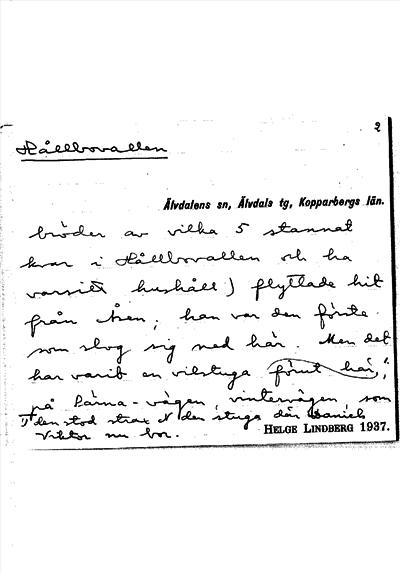 2
Hållbovallen
Älvdalens sn, Älvdals tg, Kopparbergs län.
bröder av vilka 5 stannat
kvar i Hållbovallen och ha
varsitt hushåll) flyttade hit
från Åsen; han var den förste
som slog sig ned här. Men det
har varit en vilstuga förut här,
på Särna-vägen, vintervägen, som
den stod strax N den stuga där Daniels
Viktor nu bor.
HELGE LINDBERG 1937.